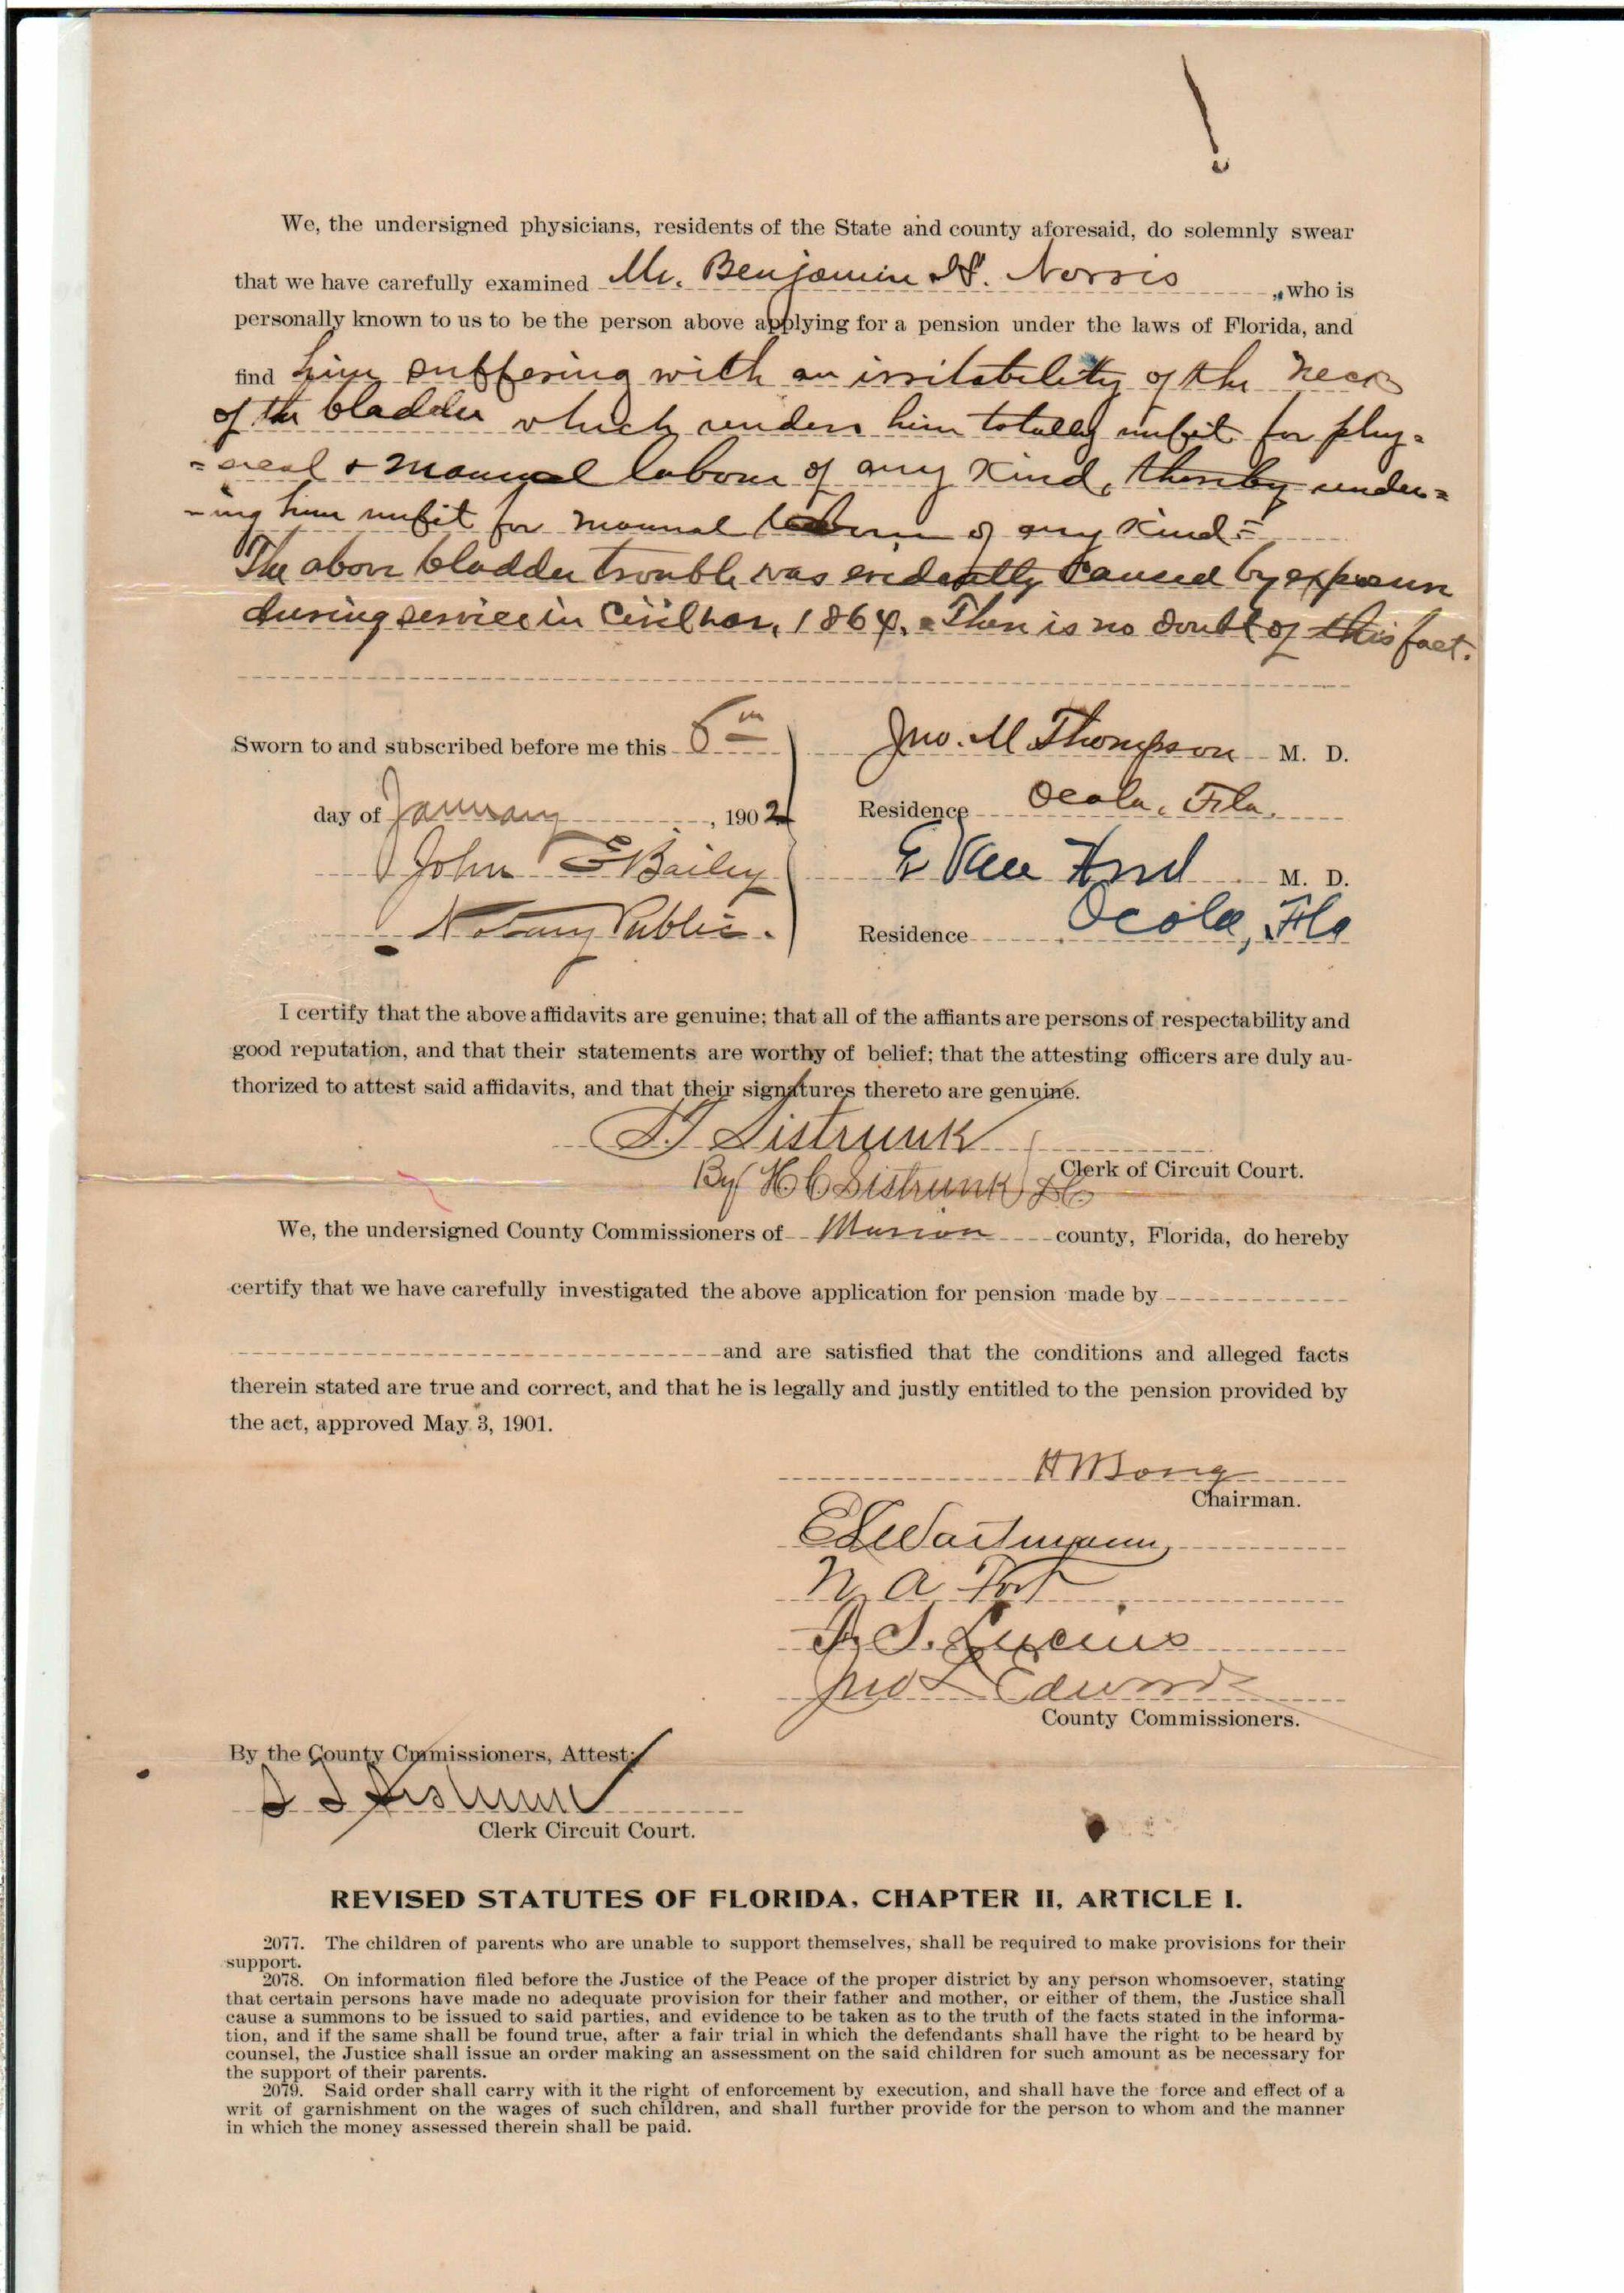 We, the undersigned physicians, residents of the State and county aforesaid, do solemnly swear
that we have carefully examined Mr. Benjamin H. Norris, who is
personally known to us to be the person above applying for a pension under the laws of Florida, and
find him suffering with an irritability of the neck
of the bladder which renders him totally unfit for phy=
=sical + manual labour of any kind, thereby render=
-ing him unfit for manual labour of any kind =
The above bladder trouble was evidently caused by exposure
during service in Civil war, 1864. = There is no doubt of this fact.
Sworn to and subscribed before me this 6th
Jno. M Thompson M. D.
day of January, 1902
Residence Ocala, Fla.
John E Bailey
E Van Hood M. D.
Notary Public.
Residence Ocala, Fla
I certify that the above affidavits are genuine; that all of the affiants are persons of respectability and
good reputation, and that their statements are worthy of belief; that the attesting officers are duly au-
thorized to attest said affidavits, and that their signatures thereto are genuine.
S. T. Sistrunk
Clerk of Circuit Court.
By H C Sistrunk D C
We, the undersigned County Commissioners of Marion county, Florida, do hereby
certify that we have carefully investigated the above application for pension made by
and are satisfied that the conditions and alleged facts
therein stated are true and correct, and that he is legally and justly entitled to the pension provided by
the act, approved May 3, 1901.
H W Long
Chairman.
E L Wartmann
N A Fort
S. Lucius
Jno L Edwards
County Commissioners.
By the County Cmmissioners, Attest:
S T Sistrunk
Clerk Circuit Court.
REVISED STATUTES OF FLORIDA, CHAPTER II, ARTICLE I.
2077. The children of parents who are unable to support themselves, shall be required to make provisions for their
support.
2078. On information filed before the Justice of the Peace of the proper district by any person whomsoever, stating
that certain persons have made no adequate provision for their father and mother, or either of them, the Justice shall
cause a summons to be issued to said parties, and evidence to be taken as to the truth of the facts stated in the informa-
tion, and if the same shall be found true, after a fair trial in which the defendants shall have the right to be heard by
counsel, the Justice shall issue an order making an assessment on the said children for such amount as be necessary for
the support of their parents.
2079. Said order shall carry with it the right of enforcement by execution, and shall have the force and effect of a
writ of garnishment on the wages of such children, and shall further provide for the person to whom and the manner
in which the money assessed therein shall be paid.